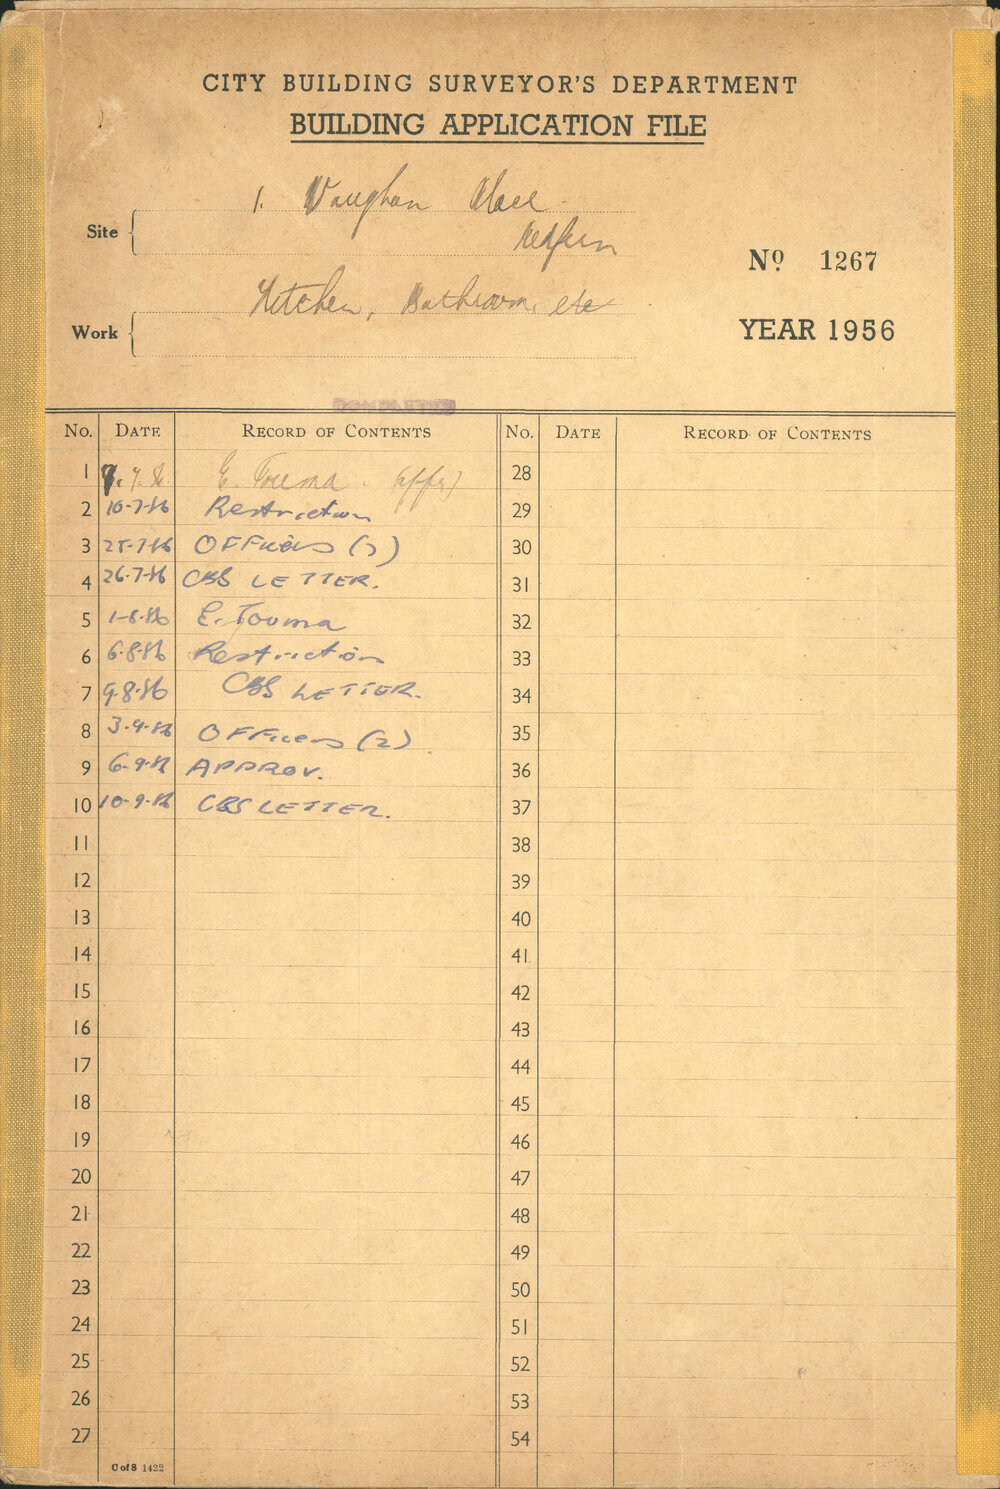 CITY BUILDING SURVEYOR'S DEPARTMENT
BUILDING APPLICATION FILE
1. Vaughan Place
Site
Redfern
No 1267
Kitchen, Bathroom, etc
Work
YEAR 1956
COMPLETED
No. DATE RECORD OF CONTENTS No. DATE RECORD OF CONTENTS
1 9.7.56 E. Touma. 28
2 10-7-56 Restriction 29
3 25-7-56 OFFicers 30
4 26-7-56 CBS LETTER. 31
5 1-8-56 E. Touma 32
6 6-8-56 Restriction 33
7 9-8-56 CBS LETTER. 34
8 3-9-56 OFFicers (2) 35
9 6-9-56 APPROV. 36
10 10-9-56 CBS LETTER. 37
11 38
12 39
13 40
14 41
15 42
16 43
17 44
18 45
19 46
20 47
21 48
22 49
23 50
24 51
25 52
26 53
27 54
C of S 1422